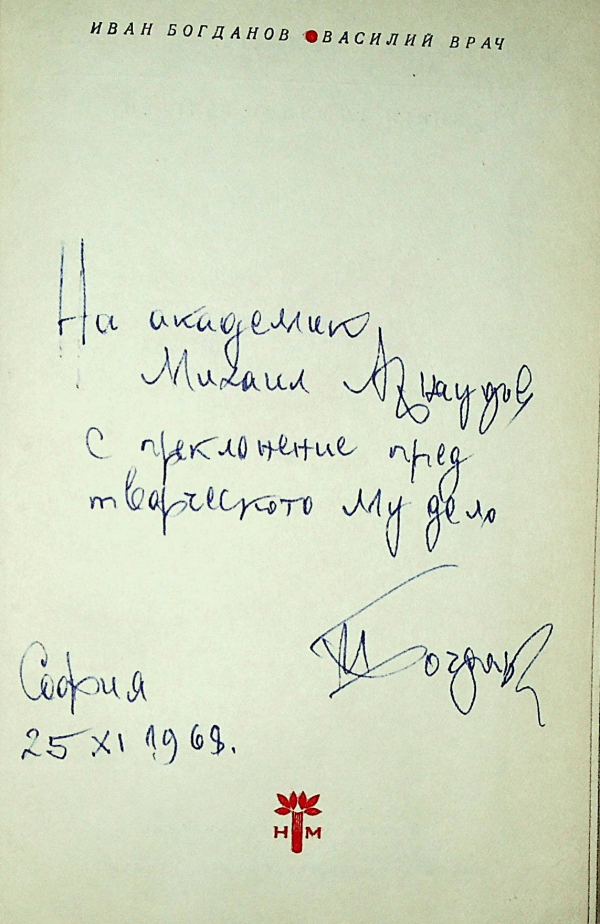 ИВАН БОГДАНОВ ● ВАСИЛИЙ ВРАЧ
На академик
Михаил Арнаудов
с преклонение пред
творческото му дело
И Богданов
София
25 XI 1968.
Н М